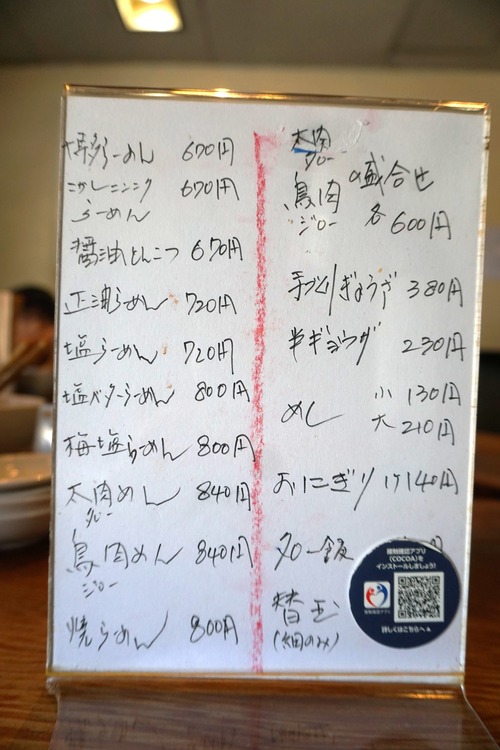 博多らーめん 670円
こがしニンニク 670円
らーめん
醤油とんこつ 670円
正油らーめん 720円
塩らーめん 720円
塩バターらーめん 800円
梅塩らーめん 800円
太肉めん 840円
タロー
鳥肉めん 840円
ジロー
焼らーめん 800円
太肉
タロー
の盛合せ
鳥肉
ジロー 各600円
手づくりぎょうざ 380円
半ギョウザ 230円
めし 小 130円
大 210円
おにぎり 1ケ140円
タロー飯 円
替玉
(細のみ)
接触確認アプリ
(COCOA)を
インストールしましょう!
接触確認アプリ
詳しくはこちらへ▲